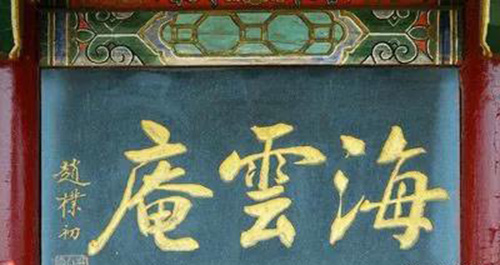 海雲庵
趙樸初